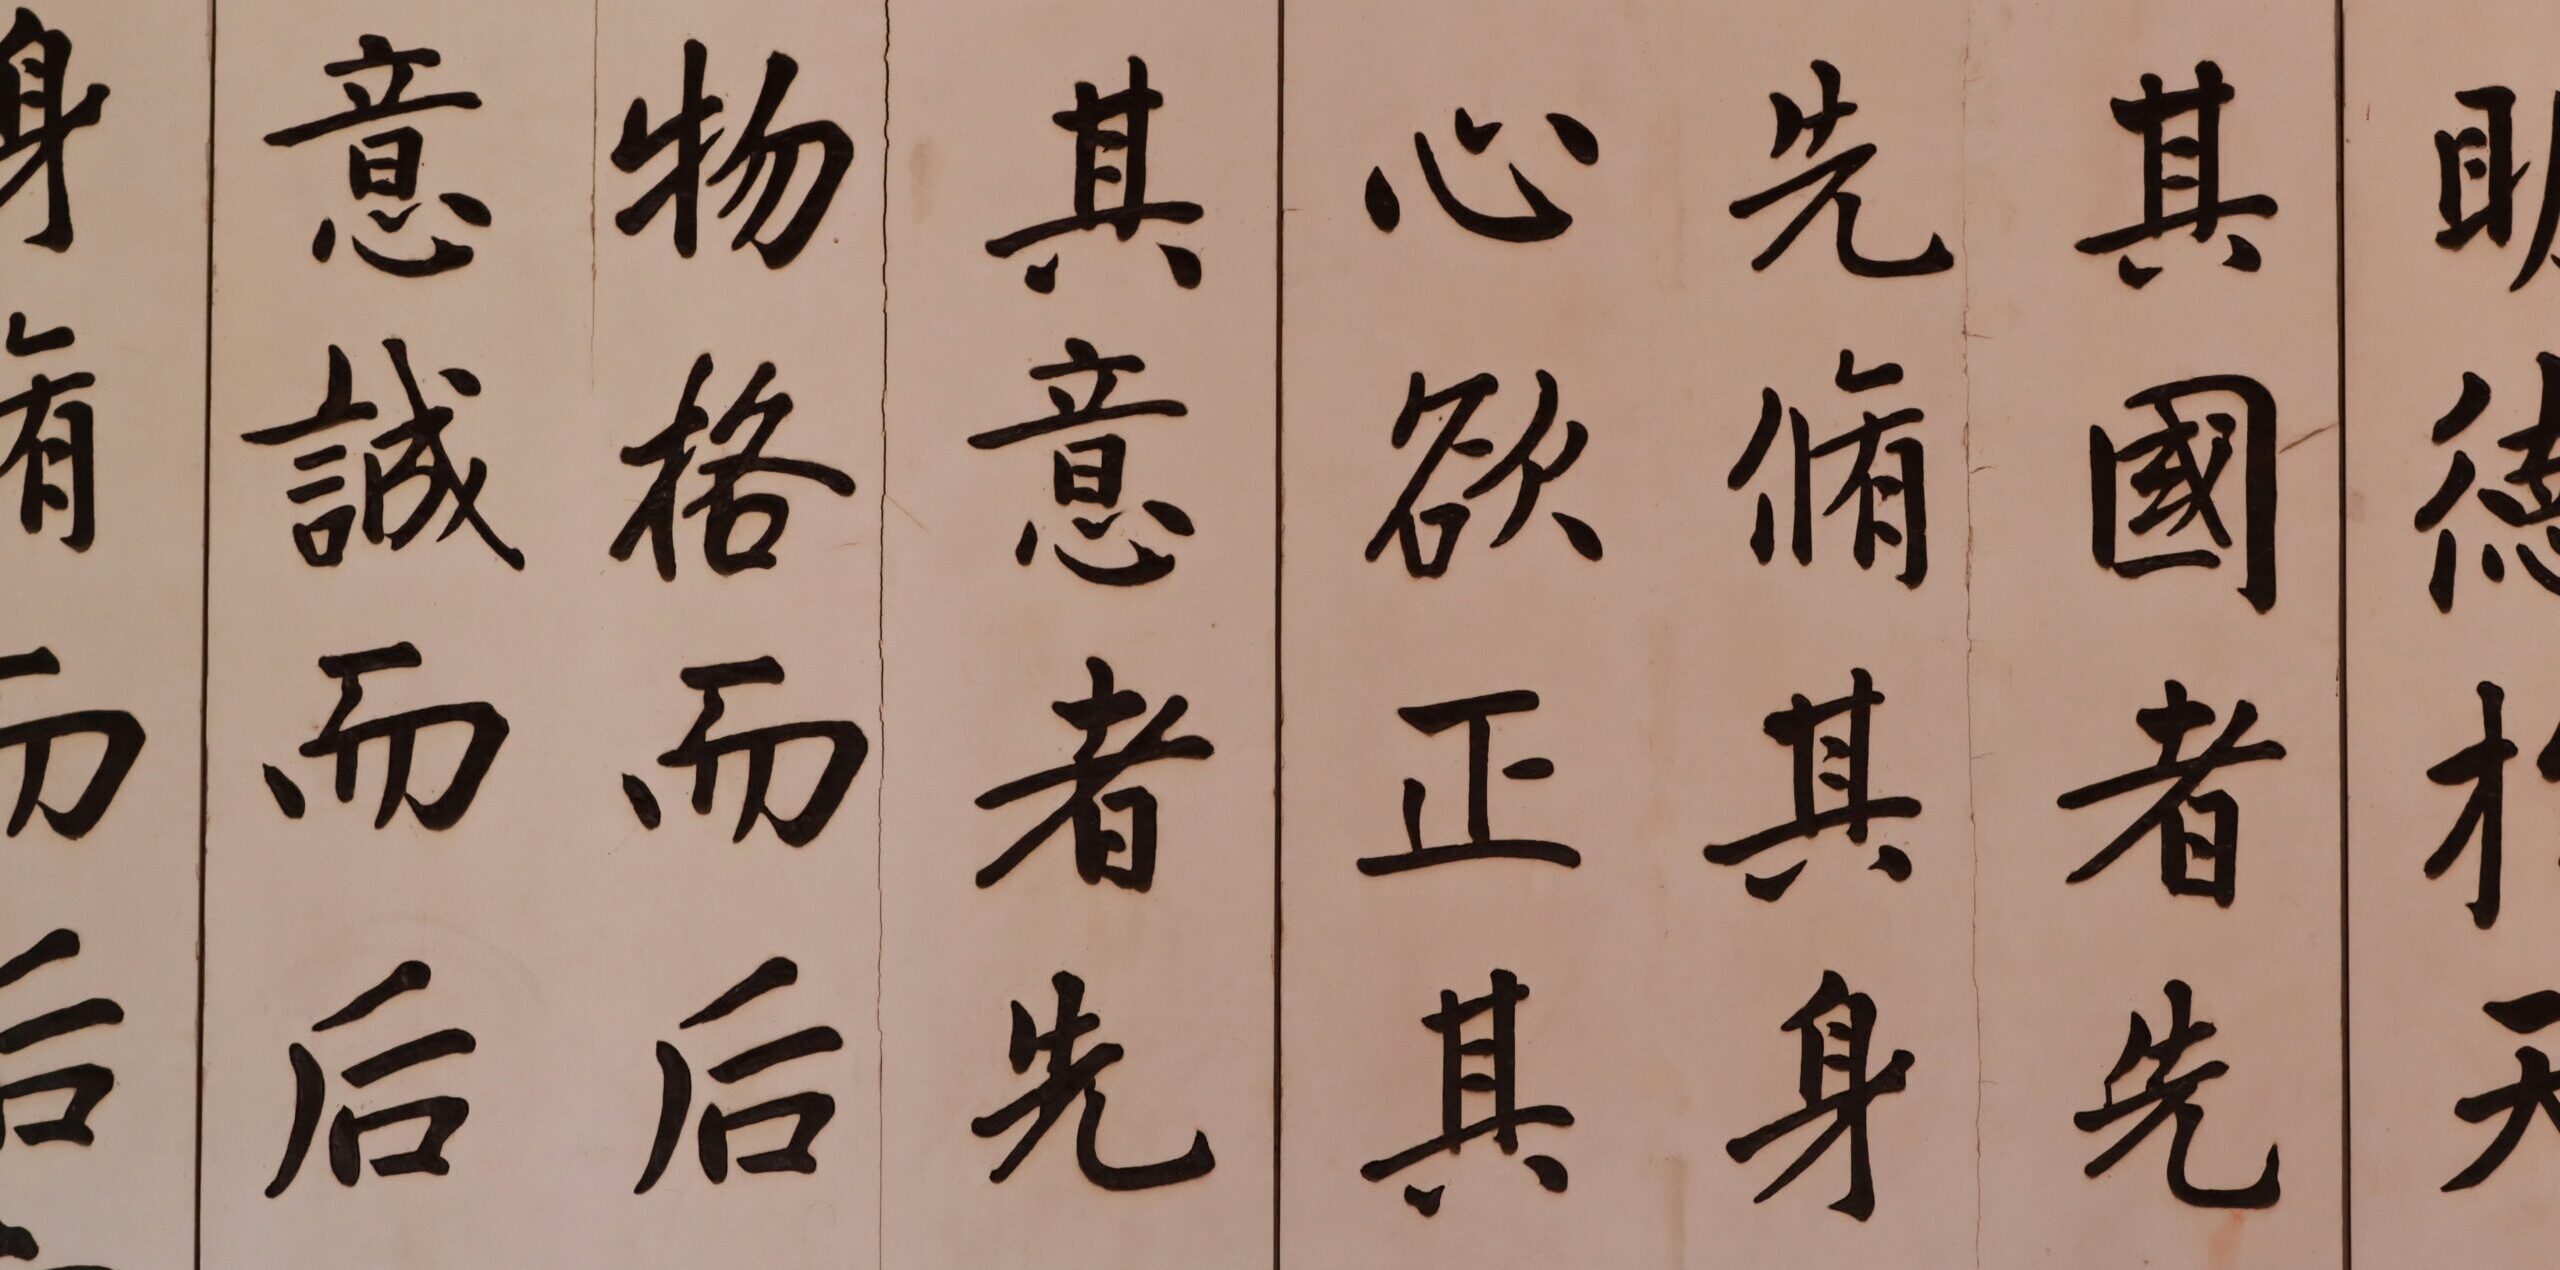 明德於天
其國者先
先脩其身
心欲正其
其意者先
物格而后
意誠而后
身脩而后